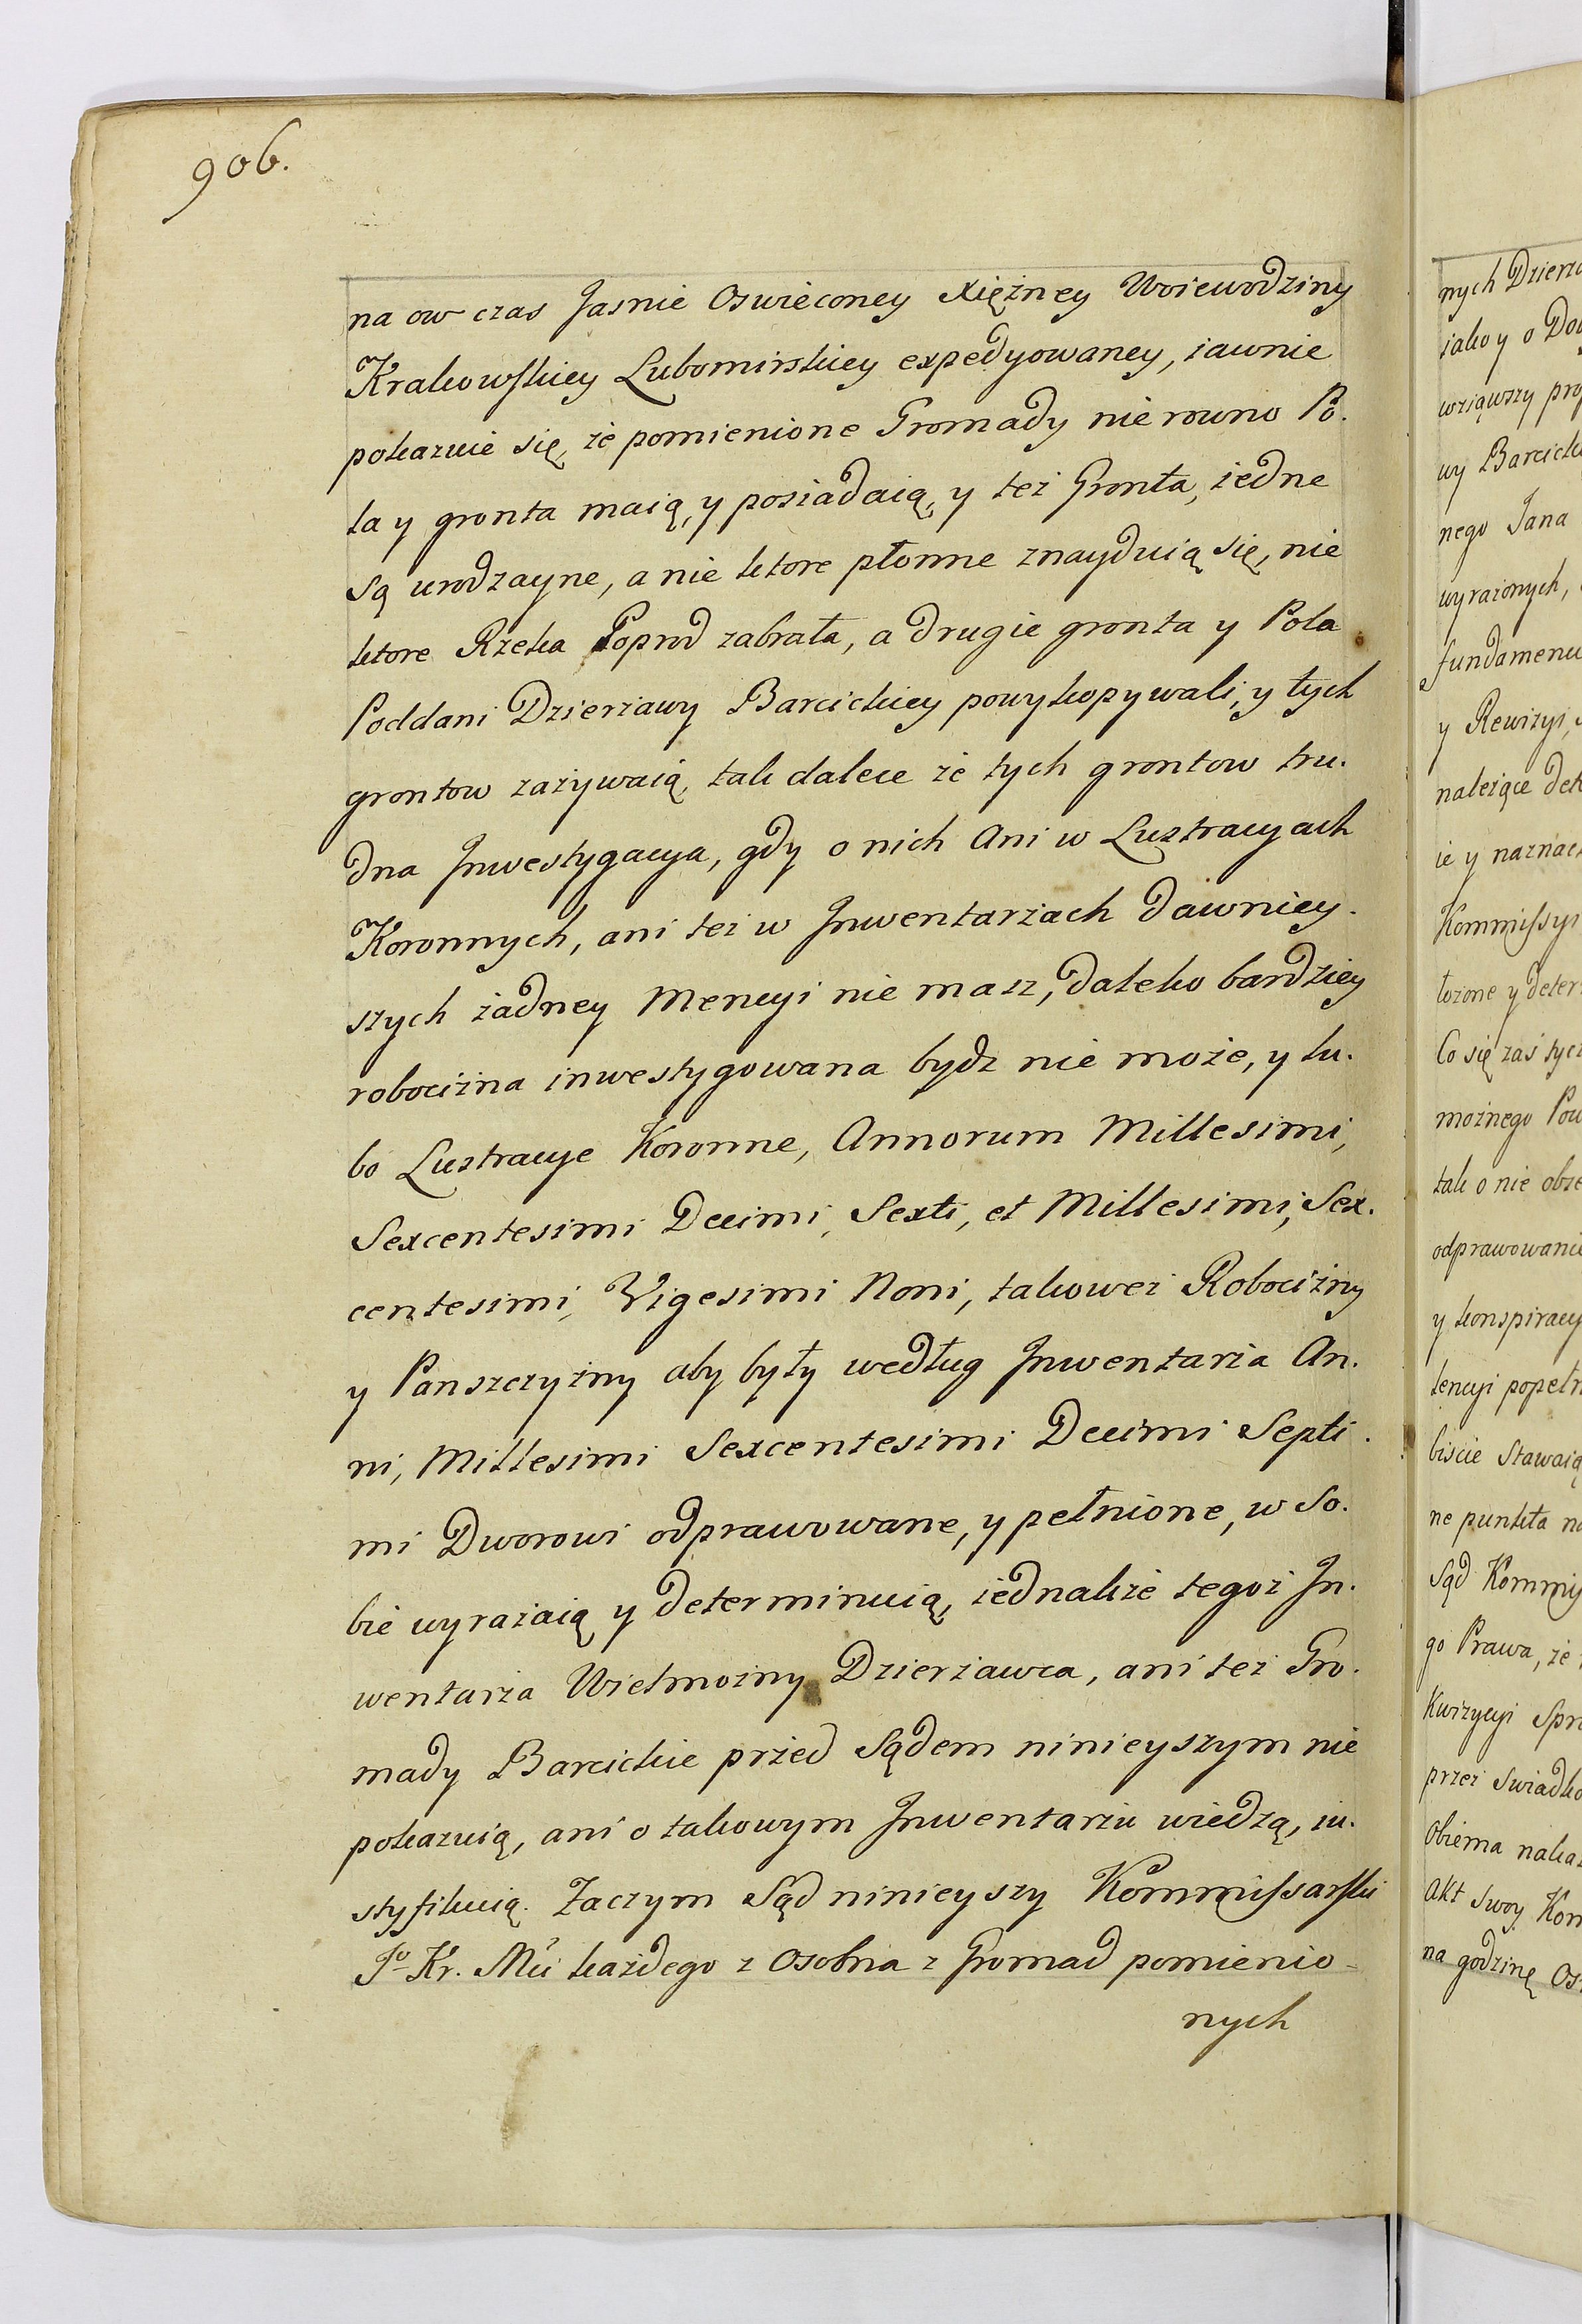 906.
na ow czas Jasnie Oswieconey Xiężney Woiewodziny
Krakowskiey Lubomirskiey expedyowaney, iawnie
pokazuie się, że pomienione Gromady nie rowno Po.
la y gronta maią, y posiadaią, y też Gronta, iedne
są urodzayne, a nie ktore płonne znayduią się, nie
ktore Rzeka Poprod zabrała, a drugie gronta y Pola
Poddani Dzierżawy Barcickiey powykopywali, y tych
grontow zażywaią, tak dalece że tych grontow tru.
dna Inwestygacya, gdy o nich Ani w Lustracyach
Koronnych, ani też w Inwentarzach dawniey.
szych żadney Mencyi nie masz, daleko bardziey
robocizna inwestygowana bydz nie może, y lu.
bo Lustracye Koronne, Annorum Millesimi,
Sexcentesimi Decimi, Sexti, et Millesimi, Sex.
centesimi, Vigesimi Noni, takoweż Robocizny
y Panszczyzny aby były według Inwentarza An.
ni, Millesimi Sexcentesimi Decimi Septi.
mi Dworowi odprawowane, y pełnione, w so.
bie wyrażaią y determinuią, iednakże tegoż In.
wentarza Wielmożny Dzierżawca, ani też Gro.
mady Barcickie przed Sądem ninieyszym nie
pokazuią, ani o takowym Inwentarzu wiedzą, iu.
styfikuią. Zaczym Sąd ninieyszy Kommissarski
Jo Kr. Mci każdego z Osobna z Gromad pomienio-
nych
nych Dzierża
iako y o Do
wziąwszy pro
wy Barcick
nego Jana
wyrażonych,
fundamenu
y Rewizyi,
należące det
ie y naznac
Kommissyi
łożone y deter
Co się zaś tycz
możnego Pow
tak o nie obse
odprawowanie
y konspiracy
tencyi popełn
biscie Stawaią
ne punkta na
Sąd Kommis
go Prawa, że
Kwizycyi Spr
przez Swiadko
Obiema nakaz
Akt swoy Kom
na godzinę Os